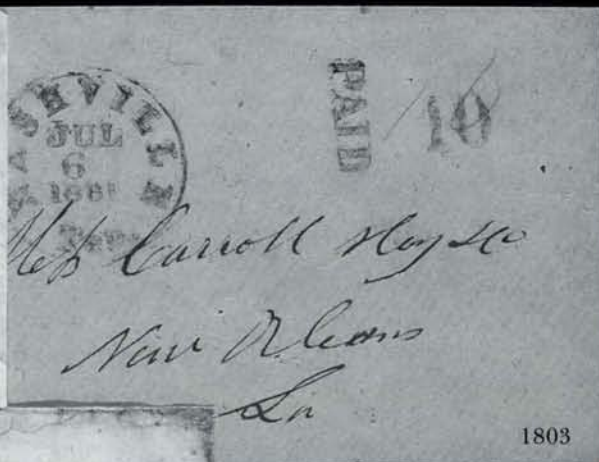 NASHVILLE
JUL
6
1861
Ten.
PAID
10
Mess Carroll Hoy & Co
New Orleans
La
1803